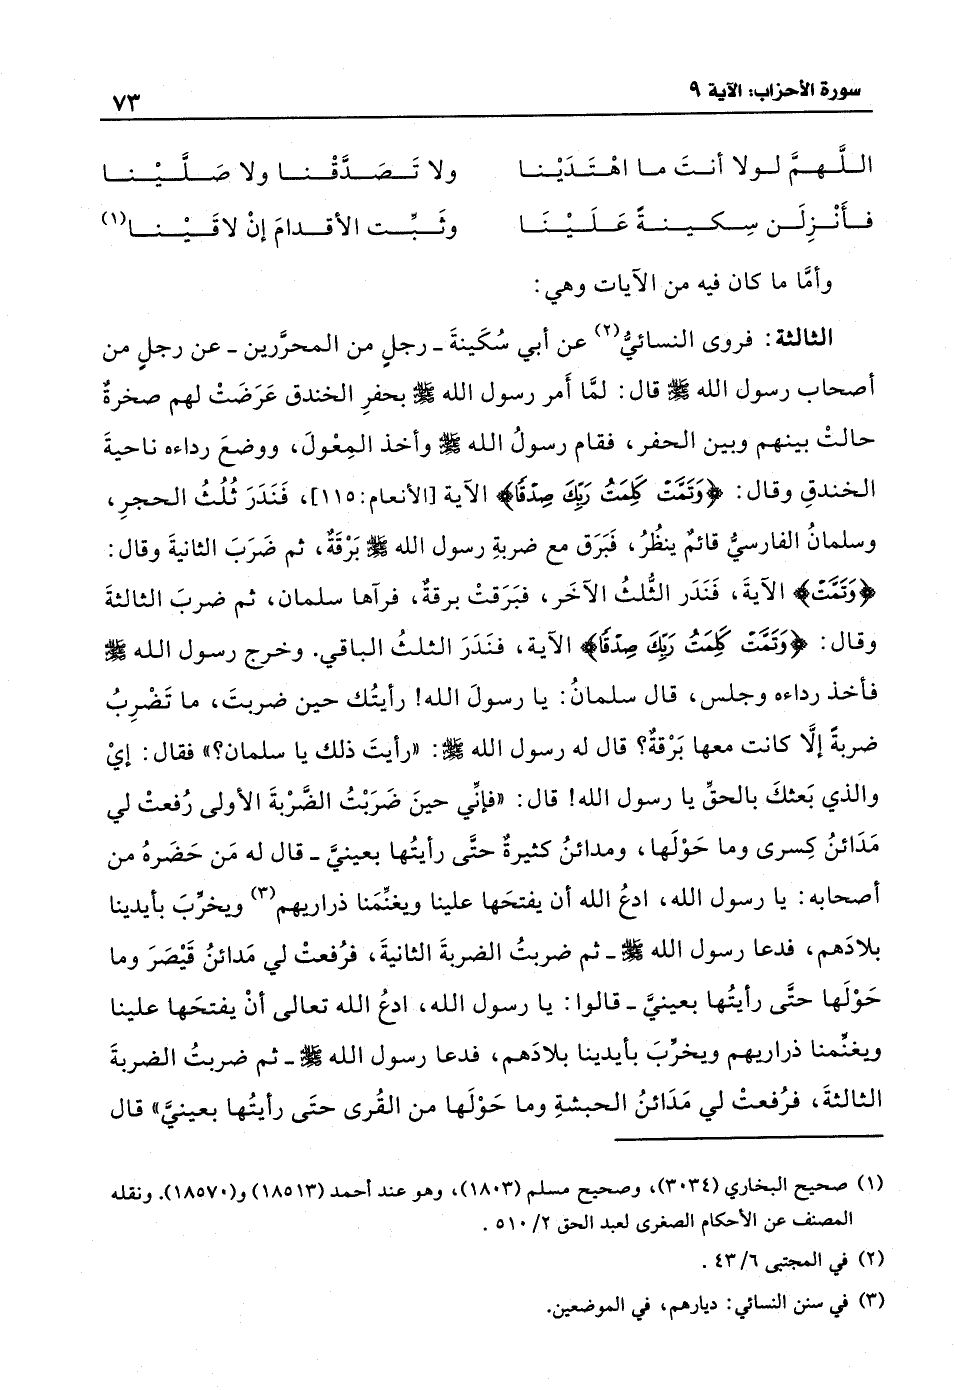 سورة الأحزاب: الآية ٩
٧٣
اللَّهمَّ لولا أنتَ ما اهْتَدَيْنا ولا تَصَدَّقْنا ولا صَلَّيْنا
فأَنْزِلَن سِكينةً عَلَيْنَا وثَبِّت الأقدامَ إنْ لاقَيْنا(١)
وأمَّا ما كان فيه من الآيات وهي:
الثالثة: فروى النسائيُّ(٢) عن أبي سُكَينةَ ـ رجلٍ من المحرَّرين ـ عن رجلٍ من
أصحاب رسول الله ﷺ قال: لمَّا أَمر رسول الله ﷺ بحفرِ الخندق عَرَضَتْ لهم صخرةٌ
حالتْ بينهم وبين الحفر، فقام رسولُ الله ﷺ وأخذ المِعْولَ، ووضعَ رداءه ناحيةَ
الخندقِ وقال: ﴿وَتَمَّتْ كَلِمَتُ رَبِّكَ صِدْقًا﴾ الآية [الأنعام: ١١٥]، فَنَدَرَ ثُلُثُ الحجرِ،
وسلمانُ الفارسيُّ قائمٌ ينظُرُ، فَبَرَق مع ضربةِ رسول الله ﷺ بَرْقَةٌ، ثم ضَرَبَ الثانيةَ وقال:
﴿وَتَمَّتْ﴾ الآيةَ، فَنَدَر الثُّلثُ الآخَر، فبَرَقتْ برقةٌ، فرآها سلمان، ثم ضربَ الثالثةَ
وقال: ﴿وَتَمَّتْ كَلِمَتُ رَبِّكَ صِدْقًا﴾ الآية، فنَدَرَ الثلثُ الباقي. وخرج رسول الله ﷺ
فأخذ رداءه وجلس، قال سلمانُ: يا رسولَ الله! رأيتُك حين ضربتَ، ما تَضْرِبُ
ضربةً إلَّا كانت معها بَرْقةٌ؟ قال له رسول الله ﷺ: «رأيتَ ذلك يا سلمان؟» فقال: إيْ
والذي بَعثكَ بالحقِّ يا رسول الله! قال: «فإنِّي حينَ ضَرَبْتُ الضَّرْبةَ الأولى رُفعتْ لي
مَدَائنُ كِسرى وما حَوْلَها، ومدائنُ كثيرةٌ حتَّى رأيتُها بعينيَّ ـ قال له مَن حَضَرهُ من
أصحابه: يا رسول الله، ادعُ الله أن يفتحَها علينا ويغنِّمَنا ذراريهم(٣) ويخرِّبَ بأيدينا
بلادَهم، فدعا رسول الله ﷺ ـ ثم ضربتُ الضربةَ الثانيةَ، فرُفعتْ لي مَدَائنُ قَيْصَرَ وما
حَوْلَها حتَّى رأيتُها بعينيَّ ـ قالوا: يا رسول الله، ادعُ الله تعالى أنْ يفتحَها علينا
ويغنِّمنا ذراريهم ويخرِّبَ بأيدينا بلادَهم، فدعا رسول الله ﷺ ـ ثم ضربتُ الضربةَ
الثالثةَ، فرُفعتْ لي مَدَائنُ الحبشةِ وما حَوْلَها من القُرى حتَّى رأيتُها بعينيَّ» قال
(١) صحيح البخاري (٣٠٣٤)، وصحيح مسلم (١٨٠٣)، وهو عند أحمد (١٨٥١٣) و(١٨٥٧٠). ونقله
المصنف عن الأحكام الصغرى لعبد الحق ٢/ ٥١٠ .
(٢) في المجتبى ٦/ ٤٣ .
(٣) في سنن النسائي: ديارهم، في الموضعين.